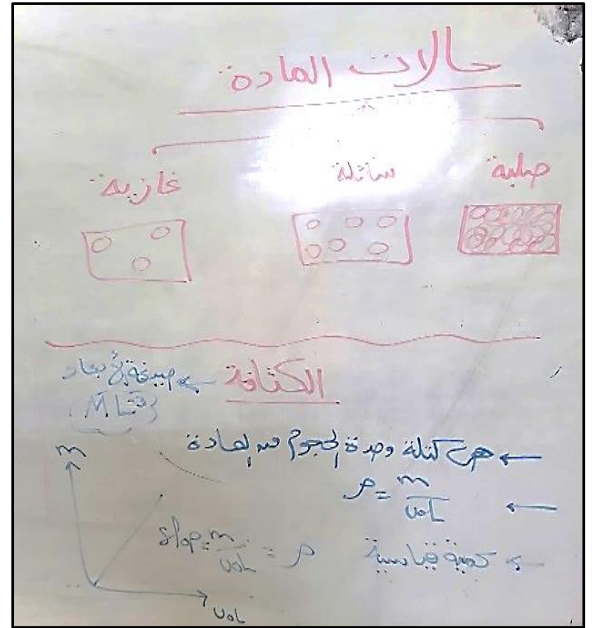 حالات المادة
صلبة سائلة غازية
الكثافة ← صيغة الأبعاد
(ML⁻³)
← هي كتلة وحدة الحجوم من المادة
← ρ = m / VoL
← كمية قياسية
m
slop = m / VoL = ρ
VoL